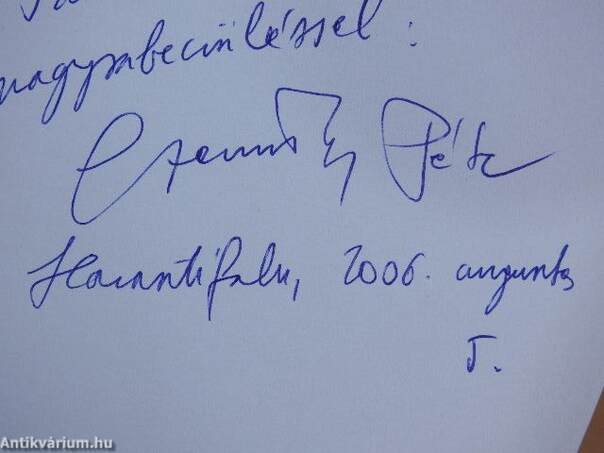 nagyrabecsüléssel:
Péter
Harasztifalu, 2006. augusztus
5.
Antikvárium.hu